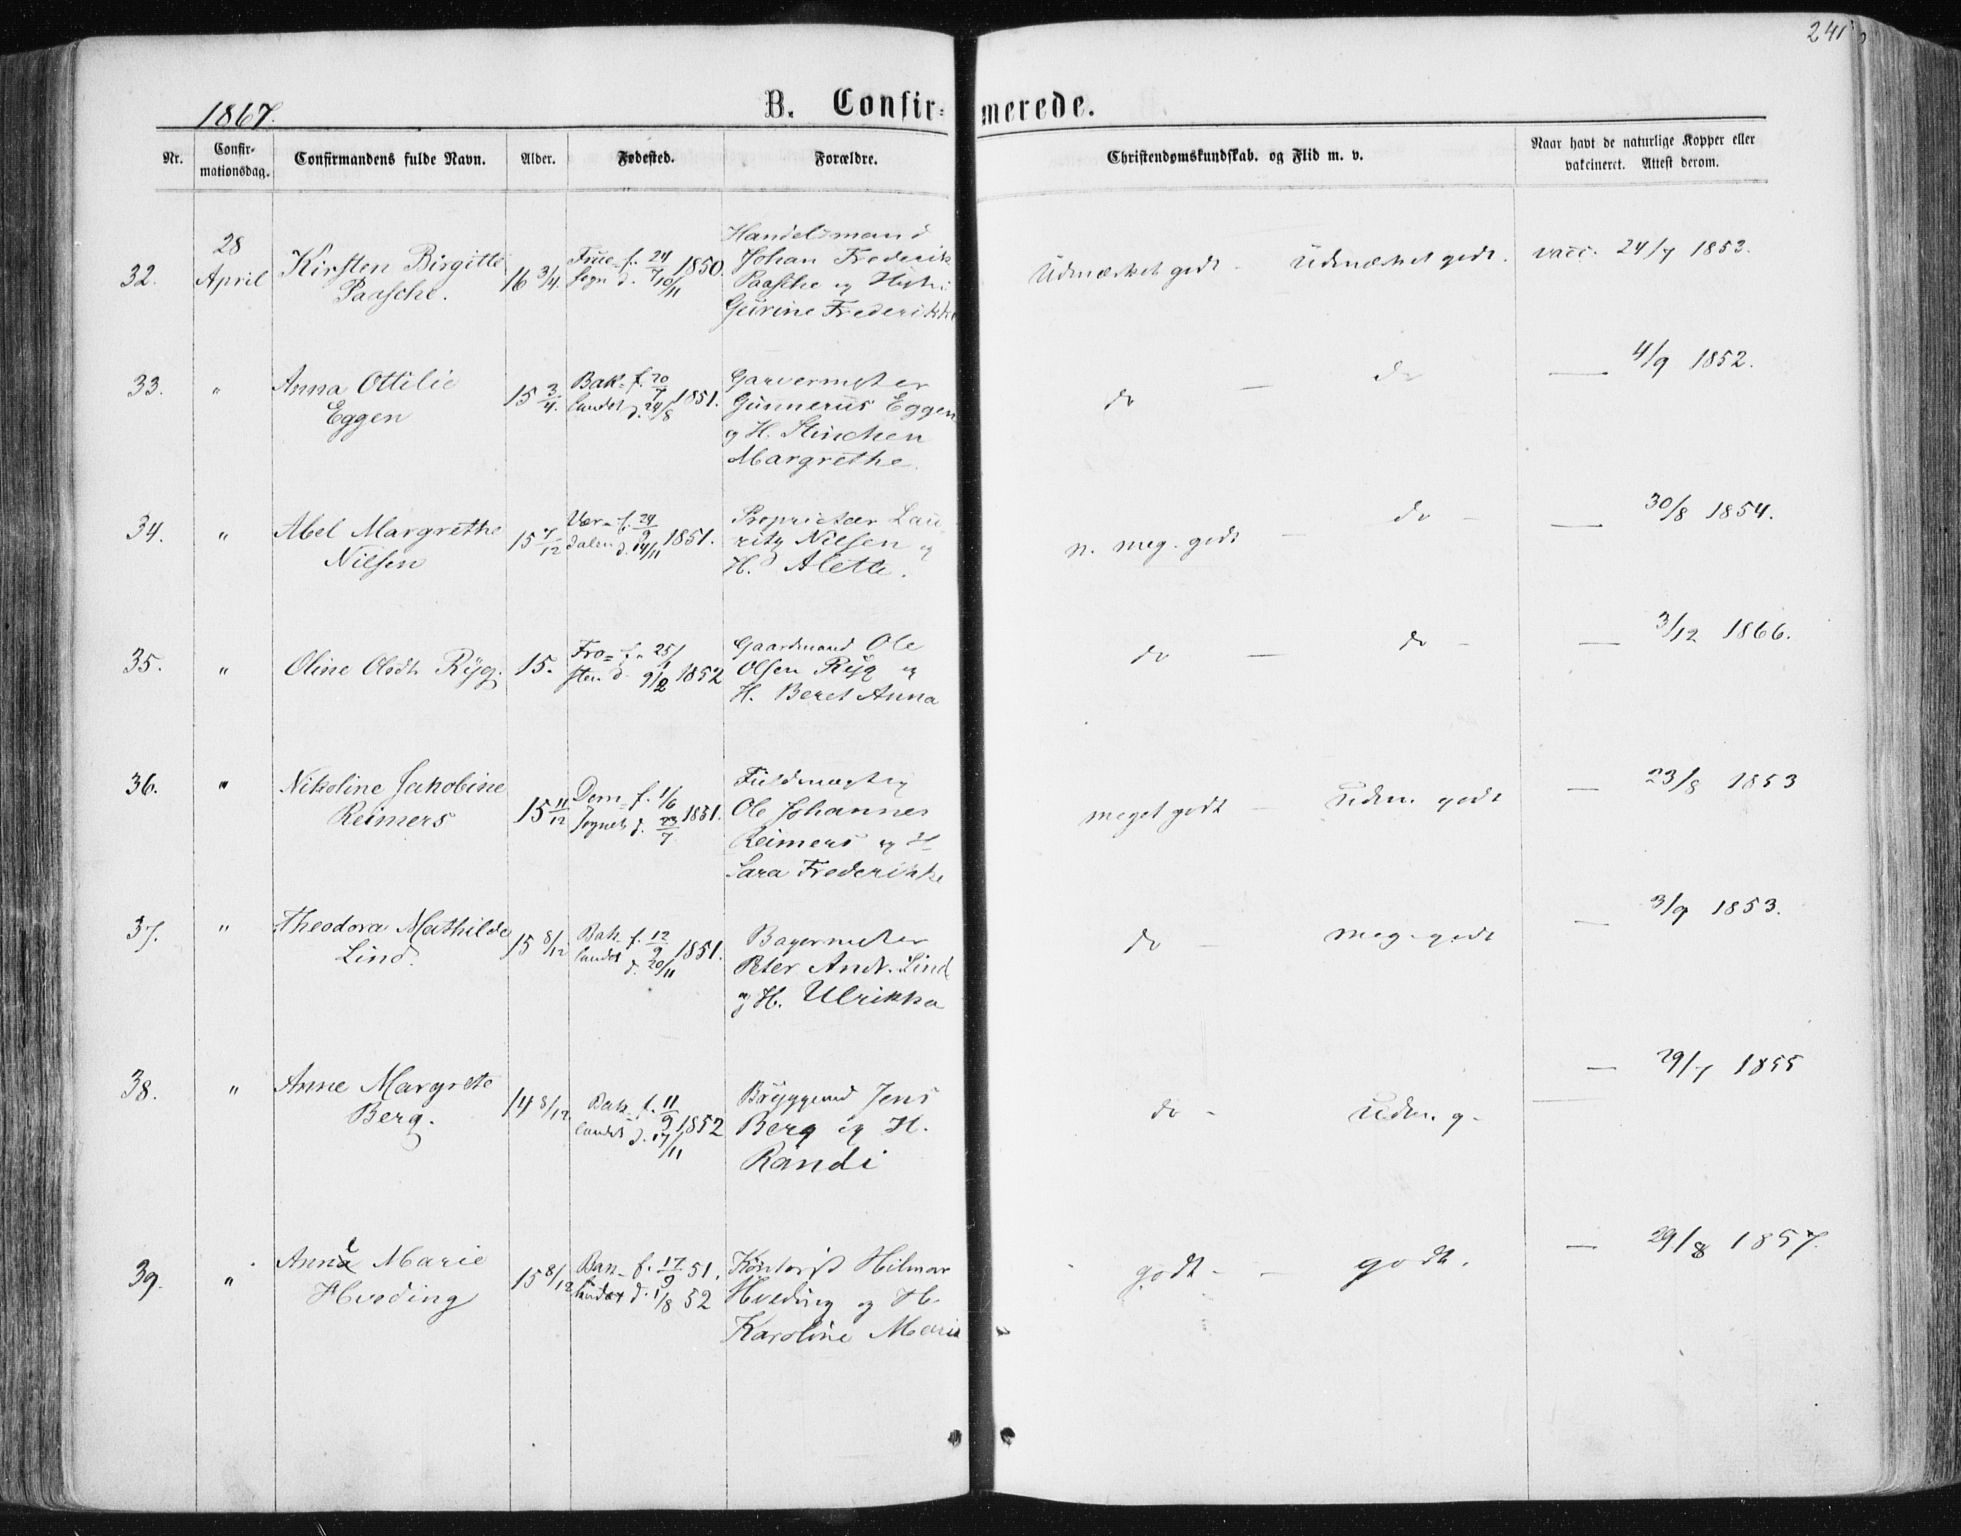 241
1867.
B. Confir=
merede.
Nr.
Confir-
mationsdag.
Confirmandens fulde Navn.
Alder.
Fødested.
Forældre.
Christendomskundskab. og Flid m. v.
Naar havt de naturlige Kopper eller
vakcineret. Attest derom.
32.
28
April
Kirsten Birgitte
Paasche.
16 3/4.
Frue= f. 24/7 1850.
sogn d. 10/11
Handelsmand
Johan Frederik
Paasche og Hustr:
Gurine Frederikke
Udmærket godt -
Udmærket godt.
vacc. 24/7 1853.
33.
"
Anna Ottilie
Eggen
15 3/4.
Bak= f. 20/7 1851.
landet d. 24/8
Garvermester
Gunnerus Eggen
og H. Stinchen
Margrethe.
do —
do
— 4/9 1852.
34.
"
Abel Margrethe
Nilsen
15 7/12
Vær= f. 24/9 1851.
dalen d. 14/11
Proprietær Lau-
ritz Nilsen og
H. Alette.
n. meg. godt -
do -
— 30/8 1854.
35.
"
Oline Olsdt. Ryg.
15.
Fro= f. 25/1
sten d. 9/2 1852
Gaardmand Ole
Olsen Ryg og
H. Beret Anna
do —
do -
— 3/12 1866.
36.
"
Nikoline Jakobine
Reimers
15 11/12
Dom= f. 1/6 1851.
sognet d. 23/7
Fuldmægtig
Ole Johannes
Reimers og H.
Sara Frederikke
meget godt —
Udm. godt
— 23/8 1853
37.
"
Theodora Mathilde
Lind.
15 8/12
Bak f. 12/9 1851.
landet d. 20/11
Bagermester
Peter Andr. Lind
og H. Ulrikka
do -
meg. godt
— 3/9 1853.
38.
"
Anne Margrete
Berg.
14 8/12.
Bak= f. 11/9 1852
landet d. 17/11
Bryggemd Jens
Berg og H.
Randi
do -
Udm. g-
— 29/7 1855
39.
"
Anne Marie
Hveding
15 8/12
Bak= f. 17/9 51.
landet d. 1/8 52
Kontorist Hilmar
Hveding og H.
Karoline Marie
godt - -
godt.
— 29/8 1857.